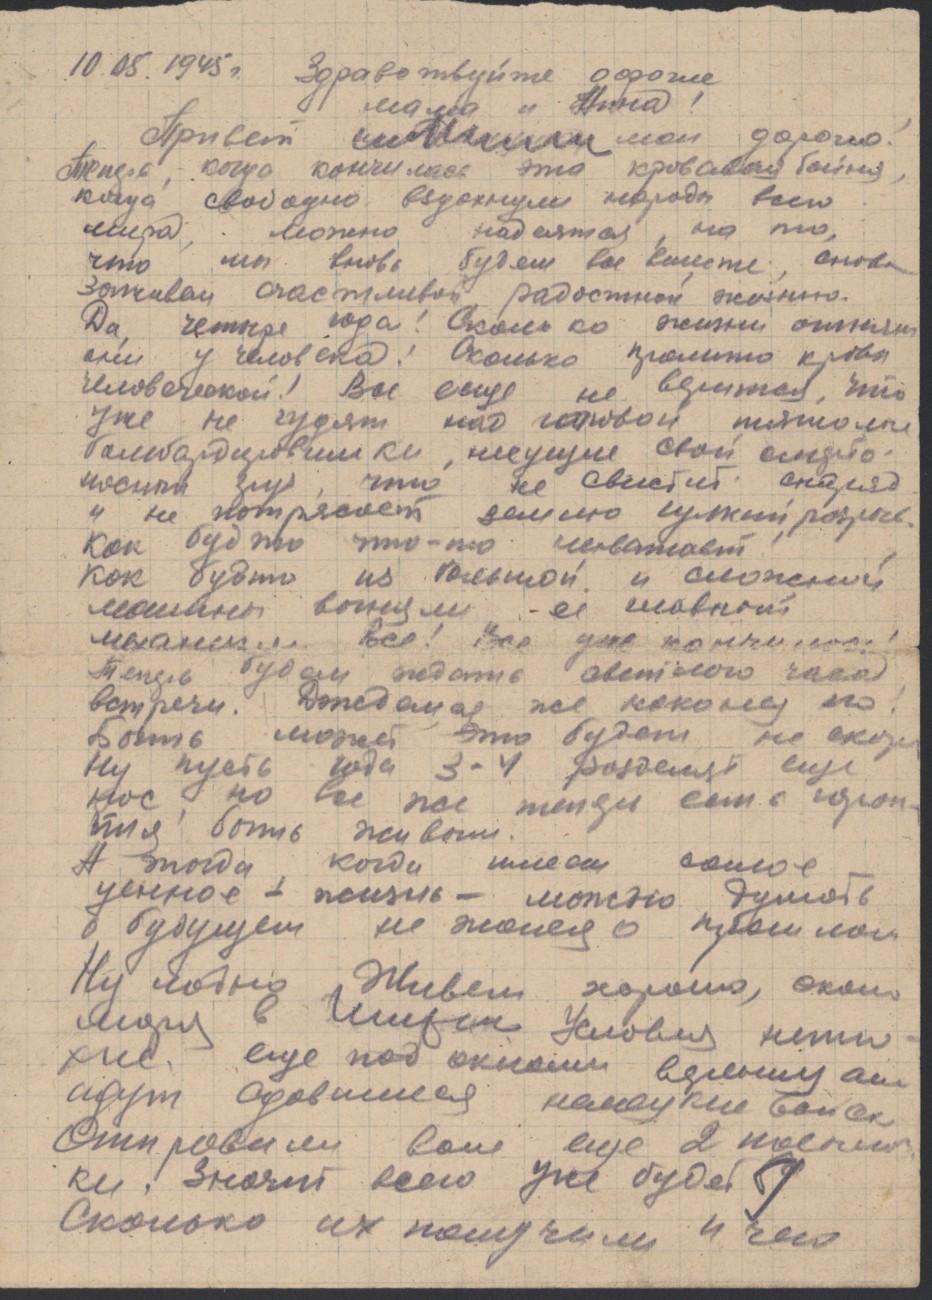 10.05.1945г. Здравствуйте дорогие
мама и Нина!
Привет мои дорогие!
Теперь, когда кончилась эта кровавая бойня,
когда свободно вздохнули народы всего
мира, можно надеятся, на то,
что мы вновь будем все вместе, снова
заживем счастливой, радостной жизнью.
Да, четыре года! Сколько жизни отняли
они у человека! Сколько пролито крови
человеческой! Все еще не верится, что
уже не гудят над головой тяжолые
бомбардировшики, несущие свой смерто-
носный груз, что не свистит снаряд
и не потрясает землю гулкий разрыв.
Как будто что-то нехватает,
как будто из большой и сложной
машины вынули ее главный
механизм. Все! Все уже кончилось!
Теперь будем ждать светлого часа
встречи. Дождемся же наконец то!
Быть может это будет не скоро
Ну пусть года 3-4 разделят еще
нас но все же теперь есть гаран-
тия быть живым.
А тогда когда имеем самое
ценное - жизнь - можно думать
о будущем не жалея о прошлом
Ну ладно. Живем хорошо, около
моря в Условия непло-
хие. еще под окнами
идут сдавшиеся немецкие войска
Отправили вам еще 2 посыл-
ки. Значит всего уже будет
Сколько их получили и чего